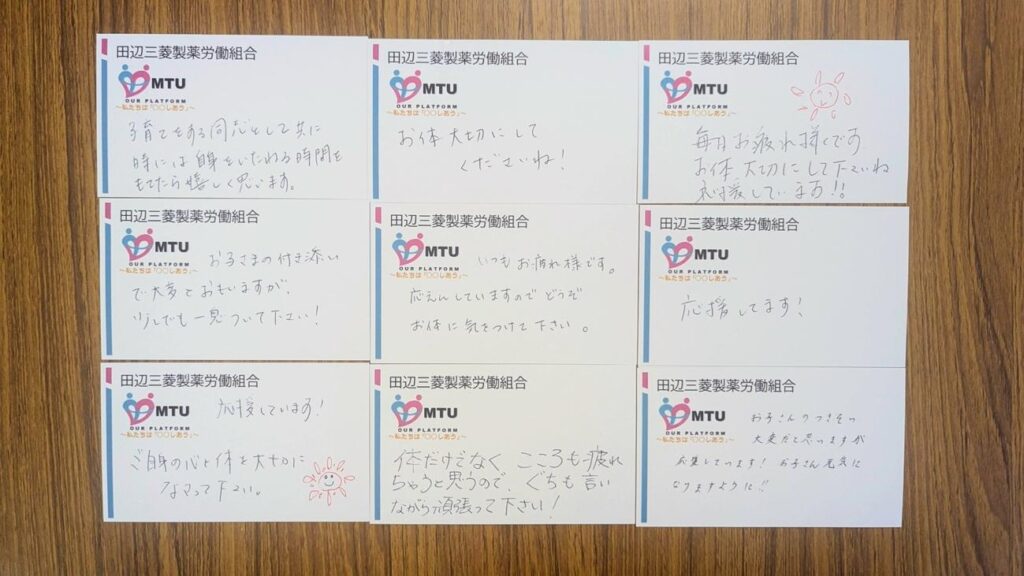 田辺三菱製薬労働組合
MTU
OUR PLATFORM
～私たちは「○○しあう」～
子育てをする同志として共に
時には自身をいたわる時間を
もてたら嬉しく思います。
田辺三菱製薬労働組合
MTU
OUR PLATFORM
～私たちは「○○しあう」～
お体大切にして
くださいね！
田辺三菱製薬労働組合
MTU
OUR PLATFORM
～私たちは「○○しあう」～
毎日お疲れ様です
お体大切にして下さいね
応援しています!!
田辺三菱製薬労働組合
MTU
OUR PLATFORM
～私たちは「○○しあう」～
お子さまの付き添い
で大変とおもいますが、
少しでも一息ついて下さい！
田辺三菱製薬労働組合
MTU
OUR PLATFORM
～私たちは「○○しあう」～
いつもお疲れ様です。
応えんしていますのでどうぞ
お体に気をつけて下さい。
田辺三菱製薬労働組合
MTU
OUR PLATFORM
～私たちは「○○しあう」～
応援してます！
田辺三菱製薬労働組合
MTU
OUR PLATFORM
～私たちは「○○しあう」～
応援しています！
ご自身の心と体を大切に
なさって下さい。
田辺三菱製薬労働組合
MTU
OUR PLATFORM
～私たちは「○○しあう」～
体だけでなく、こころも疲れ
ちゃうと思うので、ぐちも言い
ながら頑張って下さい！
田辺三菱製薬労働組合
MTU
OUR PLATFORM
～私たちは「○○しあう」～
お子さんのつきそい
大変だと思いますが
応援しています！お子さん元気に
なりますように!!